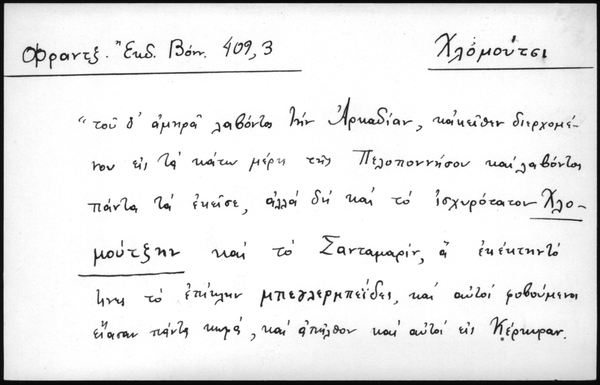 Φραντζ. Ἔκδ. Βόν. 409,3
Χλομούτσι
"τοῦ δ' ἀμηρᾶ λαβόντος τὴν Ἀρκαδίαν, κἀκεῖθεν διερχομέ-
νου εἰς τὰ κάτω μέρη τῆς Πελοποννήσου καὶ λαβόντος
πάντα τὰ ἐκεῖσε, ἀλλὰ δὴ καὶ τὸ ἰσχυρότατον Χλο-
μούτζην καὶ τὸ Σανταμαρίν, ἃ ἐκέκτηντό
τινες τὸ ἐπίκλην μπεγλερμπεΐδες, καὶ αὐτοὶ φοβούμενοι
εἴασαν πάντα κενά, καὶ ἀπῆλθον καὶ αὐτοὶ εἰς Κέρκυραν.